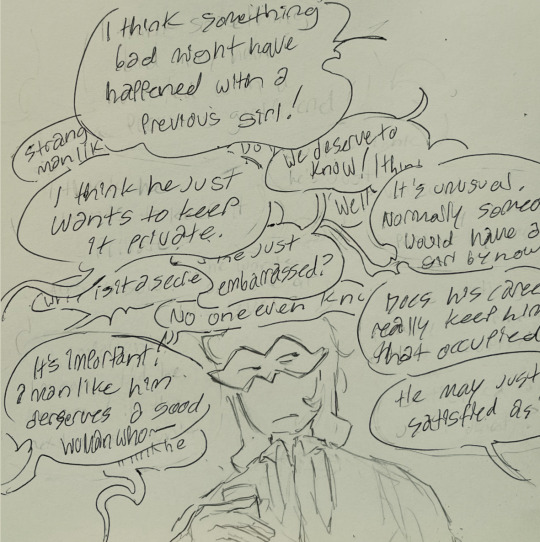 I think something
bad might have
happened with a
previous girl!
strang
man lik
Do yo
We deserve to
know! I thin
I think he just
wants to keep
it private.
Well
It's unusual.
Normally someo
would have a
girl by now
is it a secre
he just
embarrassed?
No one even kno
Does his caree
really keep him
that occupied
It's important!
a man like him
deserves a good
woman who—
he
He may just
satisfied as